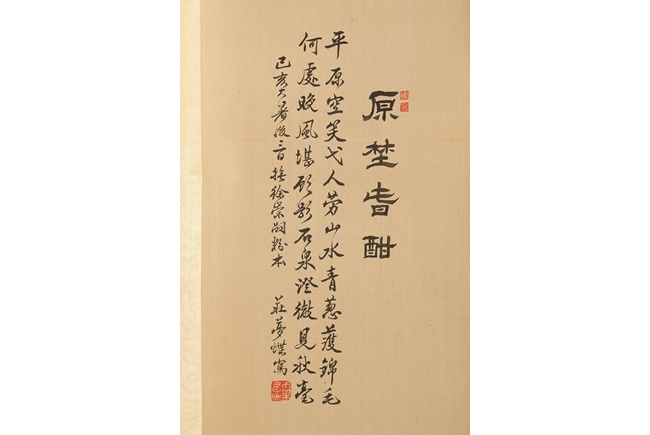 原埜旾酣
平原空笑弋人勞山水青蔥護錦毛
何處晚風堪顧影石泉澄徹見秋毫
己亥大暑後三日撫徐崇嗣粉本 莊夢蝶寫